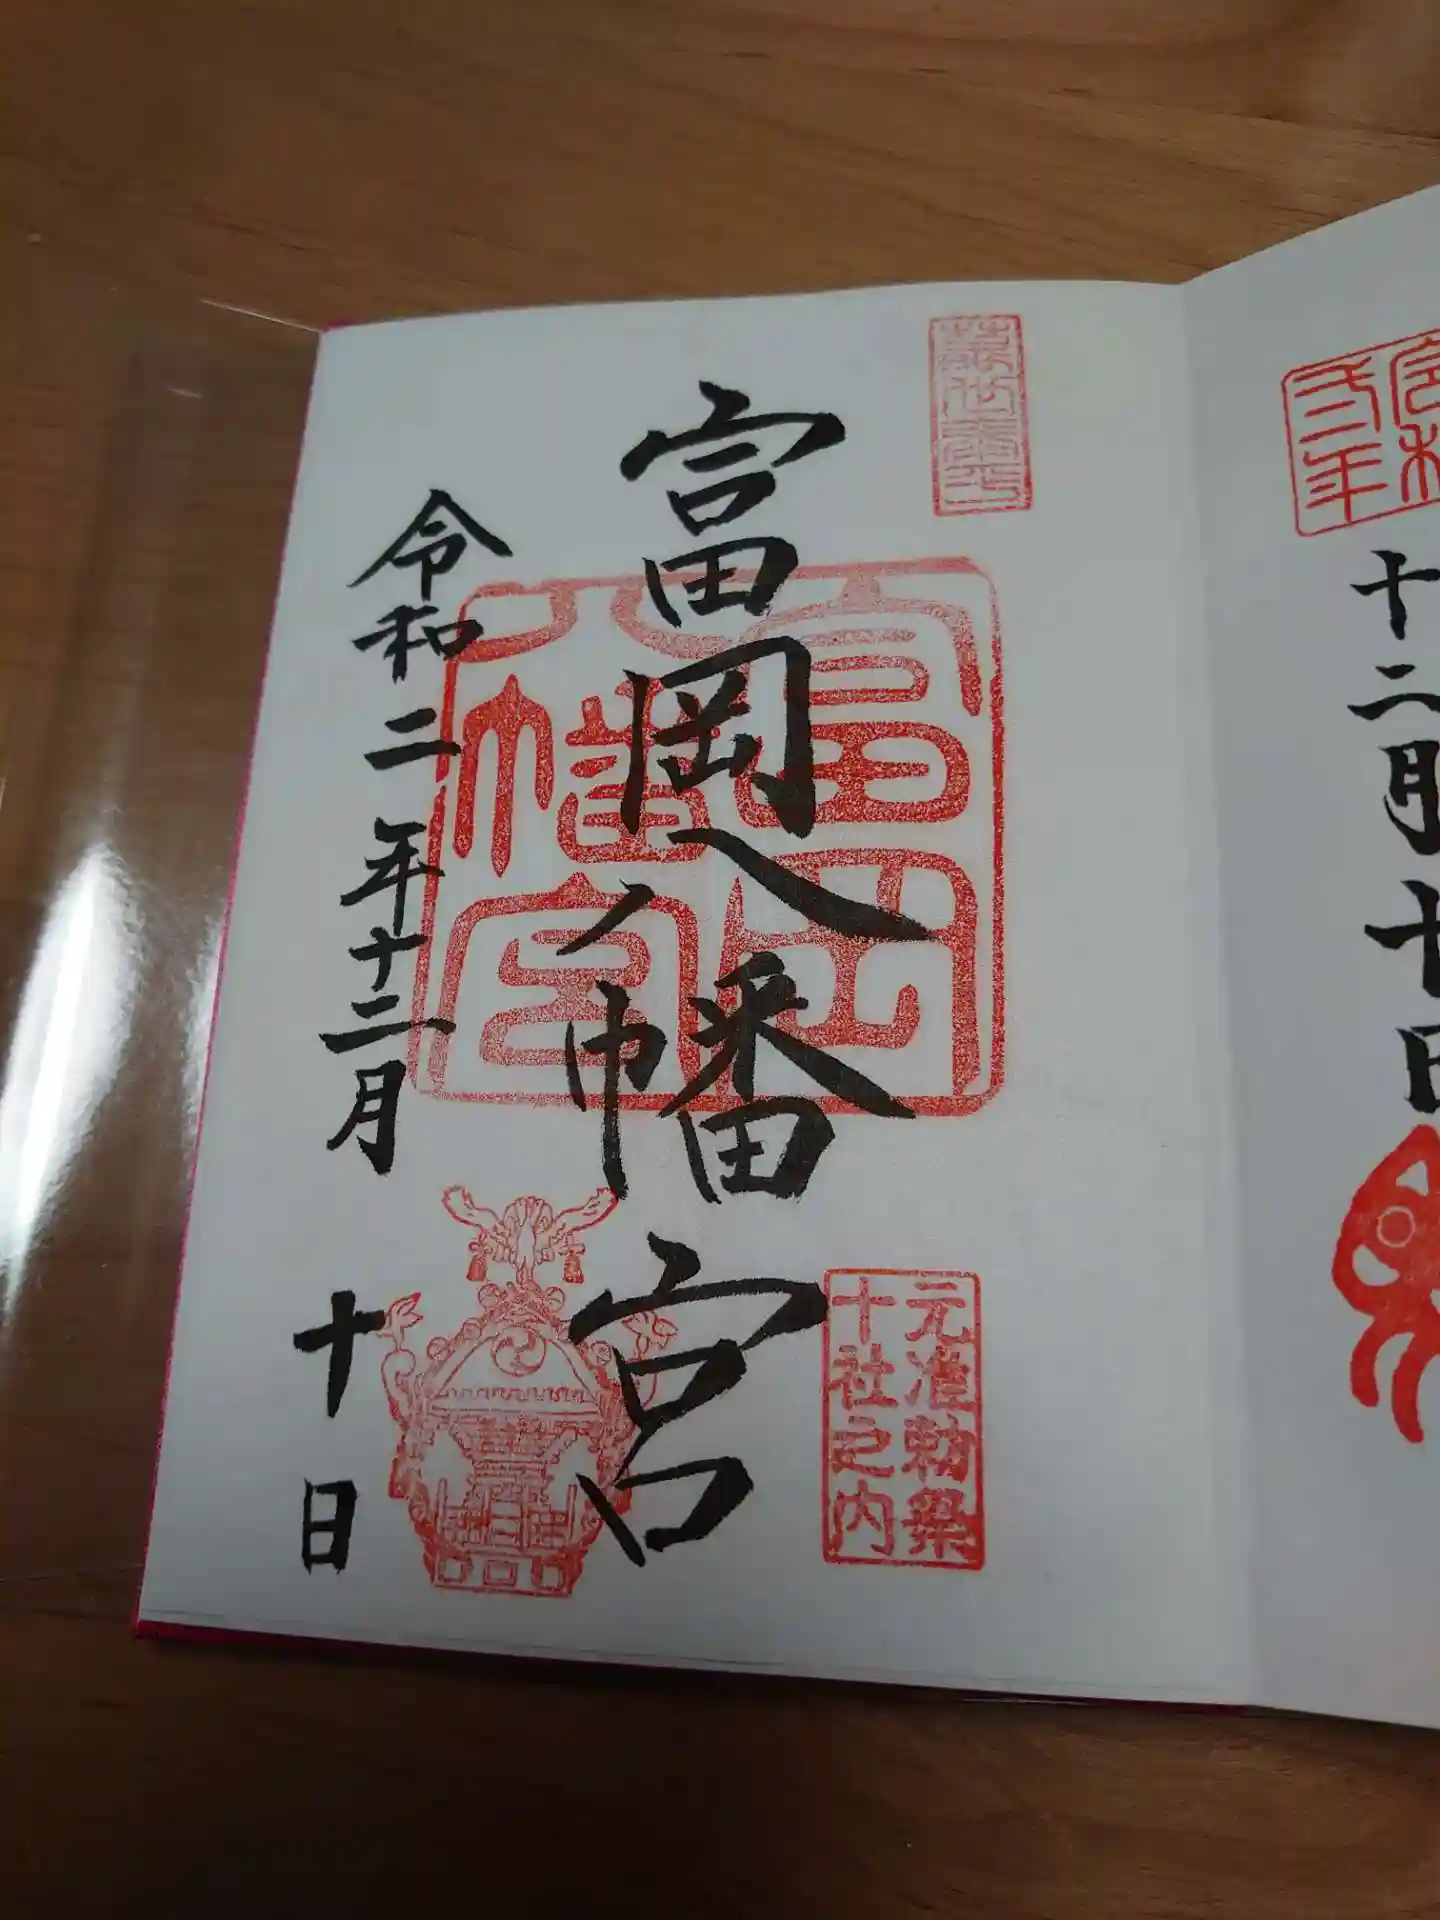 十二月十日
富岡八幡宮
令和二年十二月十日
富岡
八幡宮
元准勅祭
十社之内